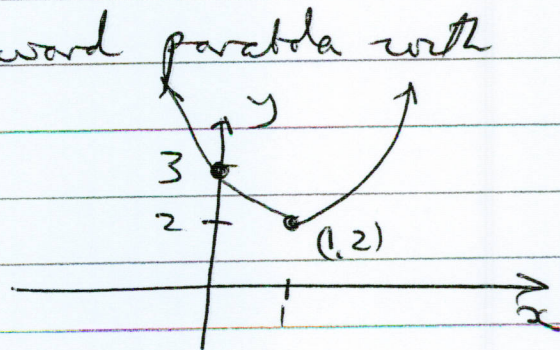 ward parabola with
y
3
2
(1,2)
1
x